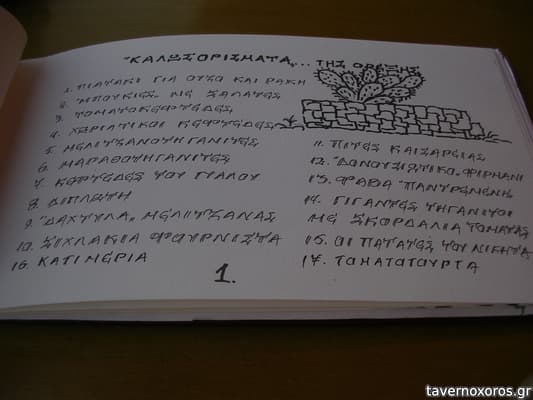 "ΚΑΛΩΣΟΡΙΣΜΑΤΑ... ΤΗΣ ΟΡΕΞΗΣ
1. ΠΙΑΤΑΚΙ ΓΙΑ ΟΥΖΟ ΚΑΙ ΡΑΚΗ
2. "ΜΠΟΥΚΙΕΣ" ΜΕ ΣΑΛΑΤΕΣ
3. ΤΟΜΑΤΟΚΕΦΤΕΔΕΣ
4. ΧΩΡΙΑΤΙΚΟΙ ΚΕΦΤΕΔΕΣ
5. ΜΕΛΙΤΖΑΝΟΤΗΓΑΝΙΤΕΣ
6. ΜΑΡΑΘΟΤΗΓΑΝΙΤΕΣ
7. ΚΕΦΤΕΔΕΣ ΤΟΥ ΓΙΑΛΟΥ
8. ΔΙΠΛΩΤΗ
9. "ΔΑΧΤΥΛΑ" ΜΕΛΙΤΖΑΝΑΣ
10. ΞΥΧΛΑΚΙΑ ΦΟΥΡΝΙΣΤΑ
16. ΚΑΤΙΜΕΡΙΑ
11. ΠΙΤΕΣ ΚΑΙΣΑΡΕΙΑΣ
12. "ΔΟΝΟΥΣΙΩΤΙΚΟ" ΦΙΡΜΑΝΙ
13. ΦΑΒΑ "ΠΑΝΤΡΕΜΕΝΗ"
14. ΓΙΓΑΝΤΕΣ ΤΗΓΑΝΙΤΟΙ
ΜΕ ΣΚΟΡΔΑΛΙΑ ΤΟΜΑΤΑΣ
15. ΟΙ ΠΑΤΑΤΕΣ ΤΟΥ ΝΙΚΗΤΑ
17. ΤΟΜΑΤΟΤΟΥΡΤΑ
1.
tavernoxoros.gr